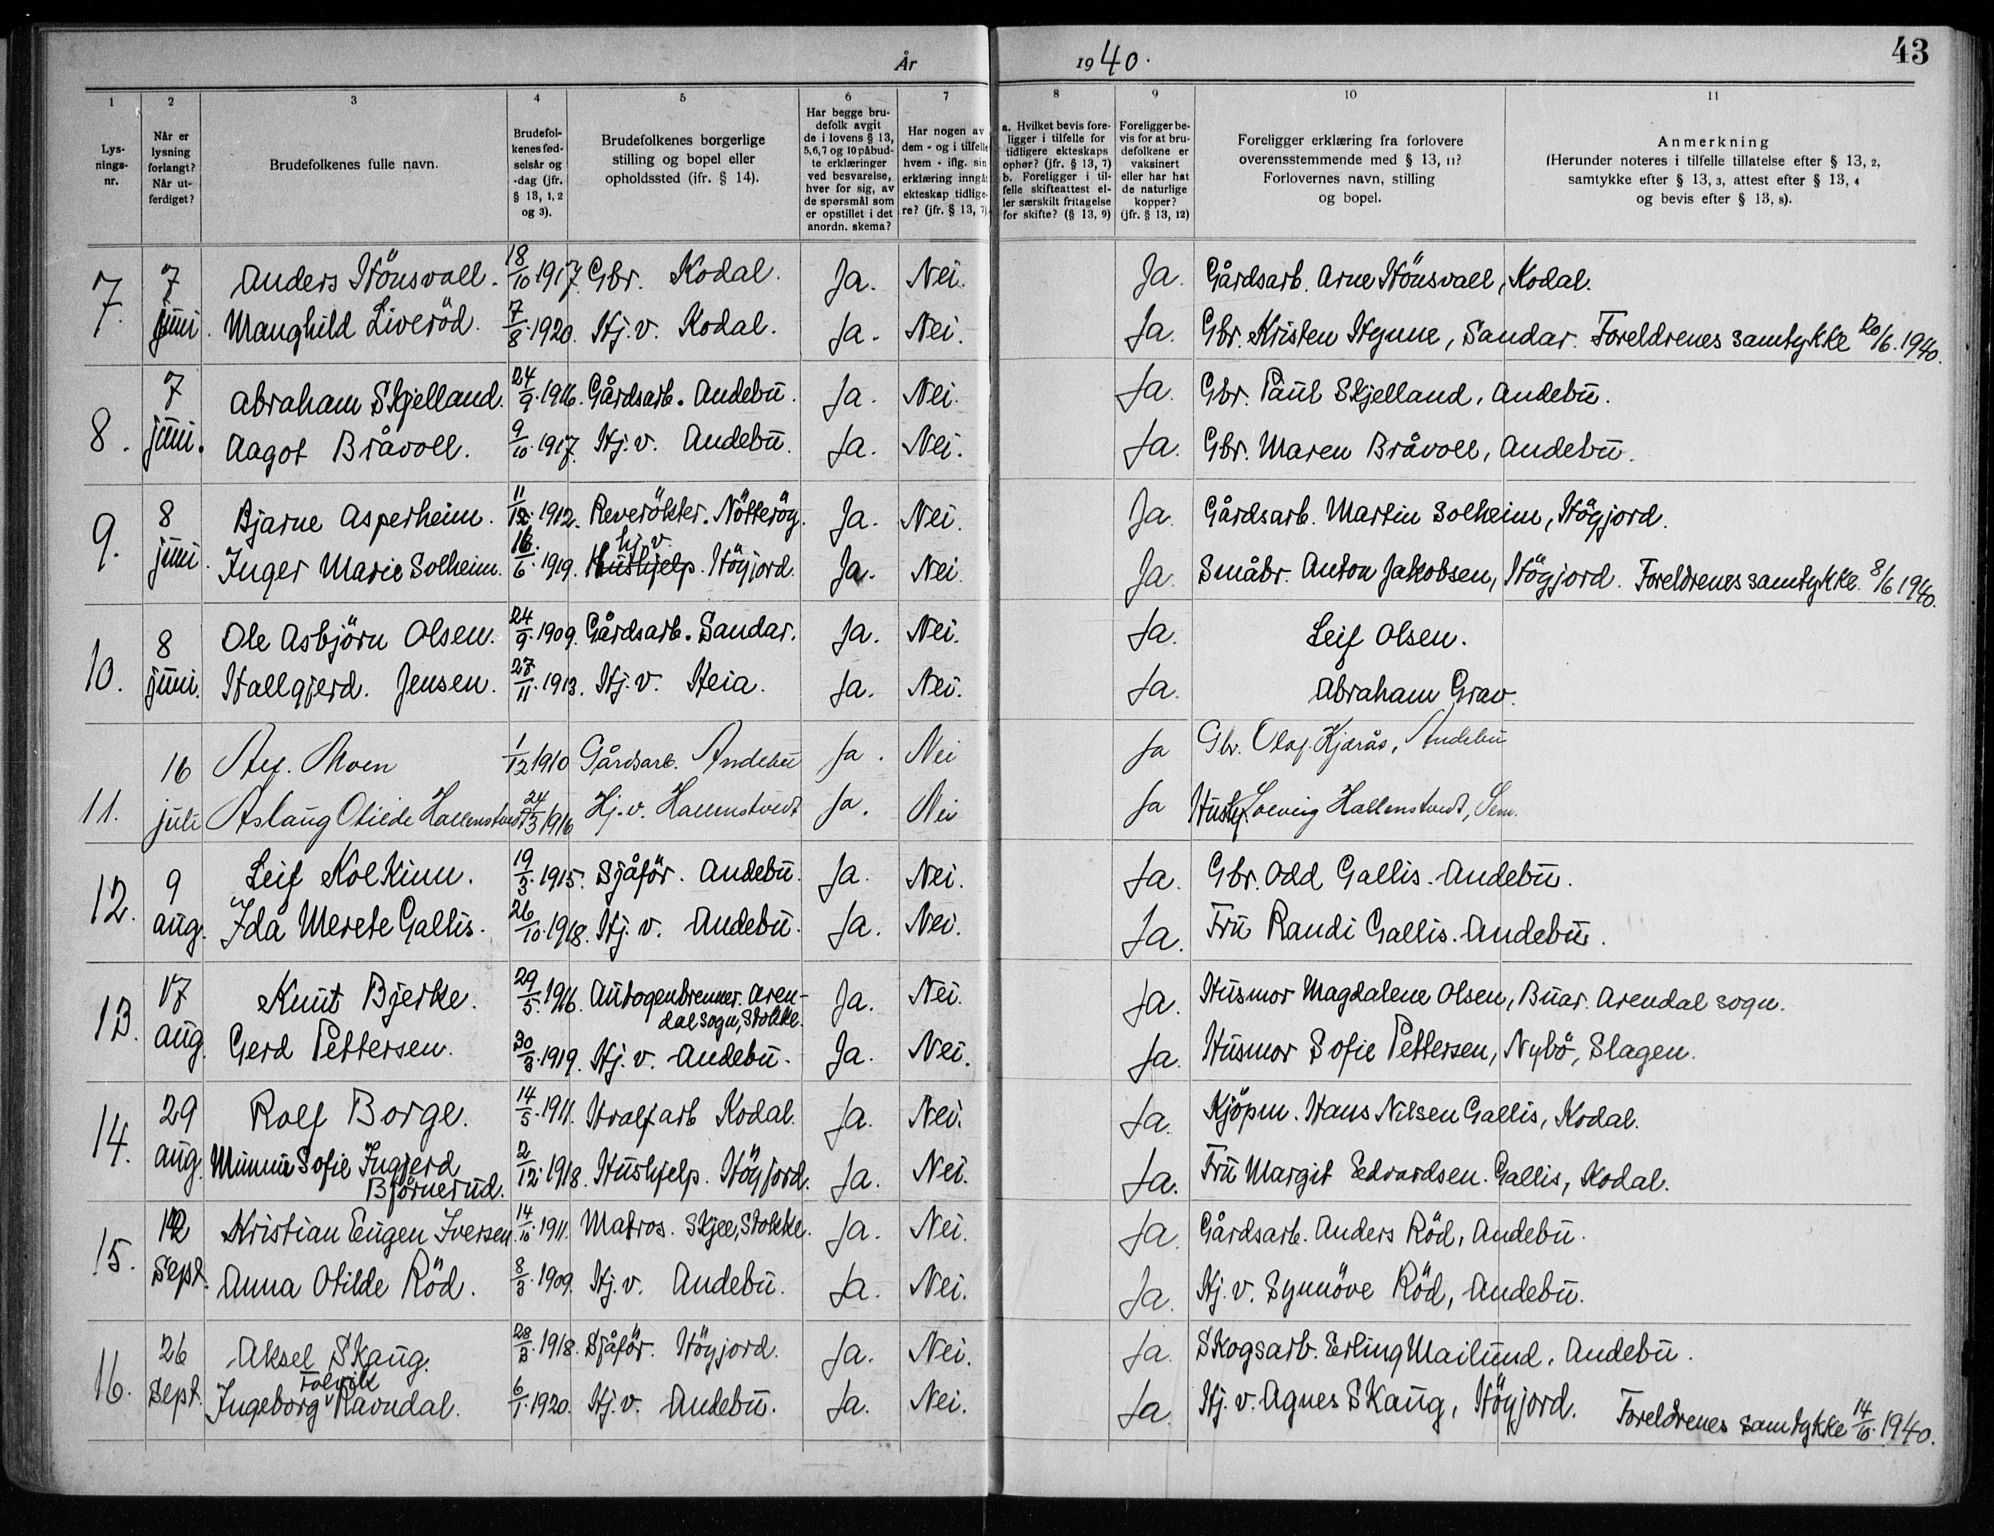 År 1940. 43
1 2 3 4 5 6 7 8 9 10 11
Lys-
nings-
nr.
Når er
lysning
forlangt?
Når ut-
ferdiget?
Brudefolkenes fulle navn.
Brudefol-
kenes fød-
selsår og
-dag (jfr.
§ 13, 1, 2
og 3).
Brudefolkenes borgerlige
stilling og bopel eller
opholdssted (jfr. § 14).
Har begge bru-
defolk avgit
de i lovens § 13,
5,6,7 og 10 påbud-
te erklæringer
ved besvarelse,
hver for sig, av
de spørsmål som
er opstillet i det
anordn. skema?
Har nogen av
dem - og i tilfelle
hvem - iflg. sin
erklæring inngåt
ekteskap tidlige-
re? (jfr. § 13, 7).
a. Hvilket bevis fore-
ligger i tilfelle for
tidligere ekteskaps
ophør? (jfr. § 13, 7)
b. Foreligger i til-
felle skifteattest el-
ler særskilt fritagelse
for skifte? (§ 13, 9)
Foreligger be-
vis for at bru-
defolkene er
vaksinert
eller har hat
de naturlige
kopper?
(jfr. § 13, 12)
Foreligger erklæring fra forlovere
overensstemmende med § 13, 11?
Forlovernes navn, stilling
og bopel.
Anmerkning
(Herunder noteres i tilfelle tillatelse efter § 13, 2,
samtykke efter § 13, 3, attest efter § 13, 4
og bevis efter § 13, 8).
7. 7 Anders Hönsvall. 18/10.1917. Gbr. Kodal. Ja. Nei. Ja. Gårdsarb. Arne Hönsvall, Kodal.
juni. Manghild Liveröd. 7/8.1920. Hj.v. Kodal. Ja. Nei. Ja. Gbr. Kristen Hynne, Sandar. Foreldrenes samtykke 20/6.1940.
8. 7 Abraham Skjelland. 24/9.1916. Gårdsarb. Andebu. Ja. Nei. Ja. Gbr. Paul Skjelland, Andebu.
juni. Aagot Bråvoll. 9/10.1917. Hj.v. Andebu. Ja. Nei. Ja. Gbr. Maren Bråvoll, Andebu.
9. 8 Bjarne Asperheim. 11/12.1912. Reverökter. Nötteröy. Ja. Nei. Ja. Gårdsarb. Martin Solheim, Höyjord.
hj.v.
juni. Inger Marie Solheim. 16/6.1919. Hushjelp. Höyjord. Ja. Nei. Ja. Småbr. Anton Jakobsen, Höyjord. Foreldrenes samtykke 8/6 1940.
10. 8 Ole Asbjörn Olsen. 24/9.1909. Gårdsarb. Sandar. Ja. Nei. Ja. Leif Olsen.
juni. Hallgjerd. Jensen. 27/11.1913. Hj.v. Heia. Ja. Nei. Ja. Abraham Grav.
11. 16 Moen 1/12 1910 Gårdsarb. Andebu Ja. Nei Ja Gbr. Olaf Kjærås, Andebu
juli Aslaug Otilde Hallenstvedt 24/3 1916 Hj.v. Hallenstvedt Ja. Nei Ja Solveig Hallenstvedt, Sem.
12. 9 Leif Kolkinn. 19/3.1915. Sjåför. Andebu. Ja. Nei. Ja. Gbr. Odd Gallis. Andebu.
aug. Ida Merete Gallis. 26/10.1918. Hj.v. Andebu. Ja. Nei. Ja. Fru Randi Gallis. Andebu.
13. 17 Knut Bjerke. 29/5.1916. Autogenbrenner. Aren-
dal sogn, Stokke. Ja. Nei. Ja. Husmor Magdalene Olsen, Buar. Arendal sogn.
aug. Gerd Pettersen. 30/3.1919. Hj.v. Andebu. Ja. Nei. Ja. Husmor Sofie Pettersen, Nybö, Slagen.
14. 29 Rolf Borge. 14/5.1911. Hvalfarb Kodal. Ja. Nei. Ja. Kjöpm. Hans Nilsen Gallis, Kodal.
aug. Minnie Sofie Ingjerd
Björnerud. 2/12.1918. Hushjelp. Höyjord. Ja. Nei. Ja. Fru Margit Edvardsen. Gallis, Kodal.
15. 12 Kristian Eugen Iversen. 14/10.1911. Matros. Skjee, Stokke. Ja. Nei. Ja. Gårdsarb. Anders Röd, Andebu.
sept. Anna Otilde Röd. 8/3.1909. Hj.v. Andebu. Ja. Nei. Ja. Hj.v. Synnöve Röd, Andebu.
16. 26 Aksel Skaug. 28/3.1918. Sjåför. Höyjord. Ja. Nei. Ja. Skogsarb. Erling Mailund. Andebu.
sept. Ingeborg Ravndal. 6/1.1920. Hj.v. Andebu. Ja. Nei. Ja. Hj.v. Agnes Skaug, Höyjord. Foreldrenes samtykke 14/10.1940.